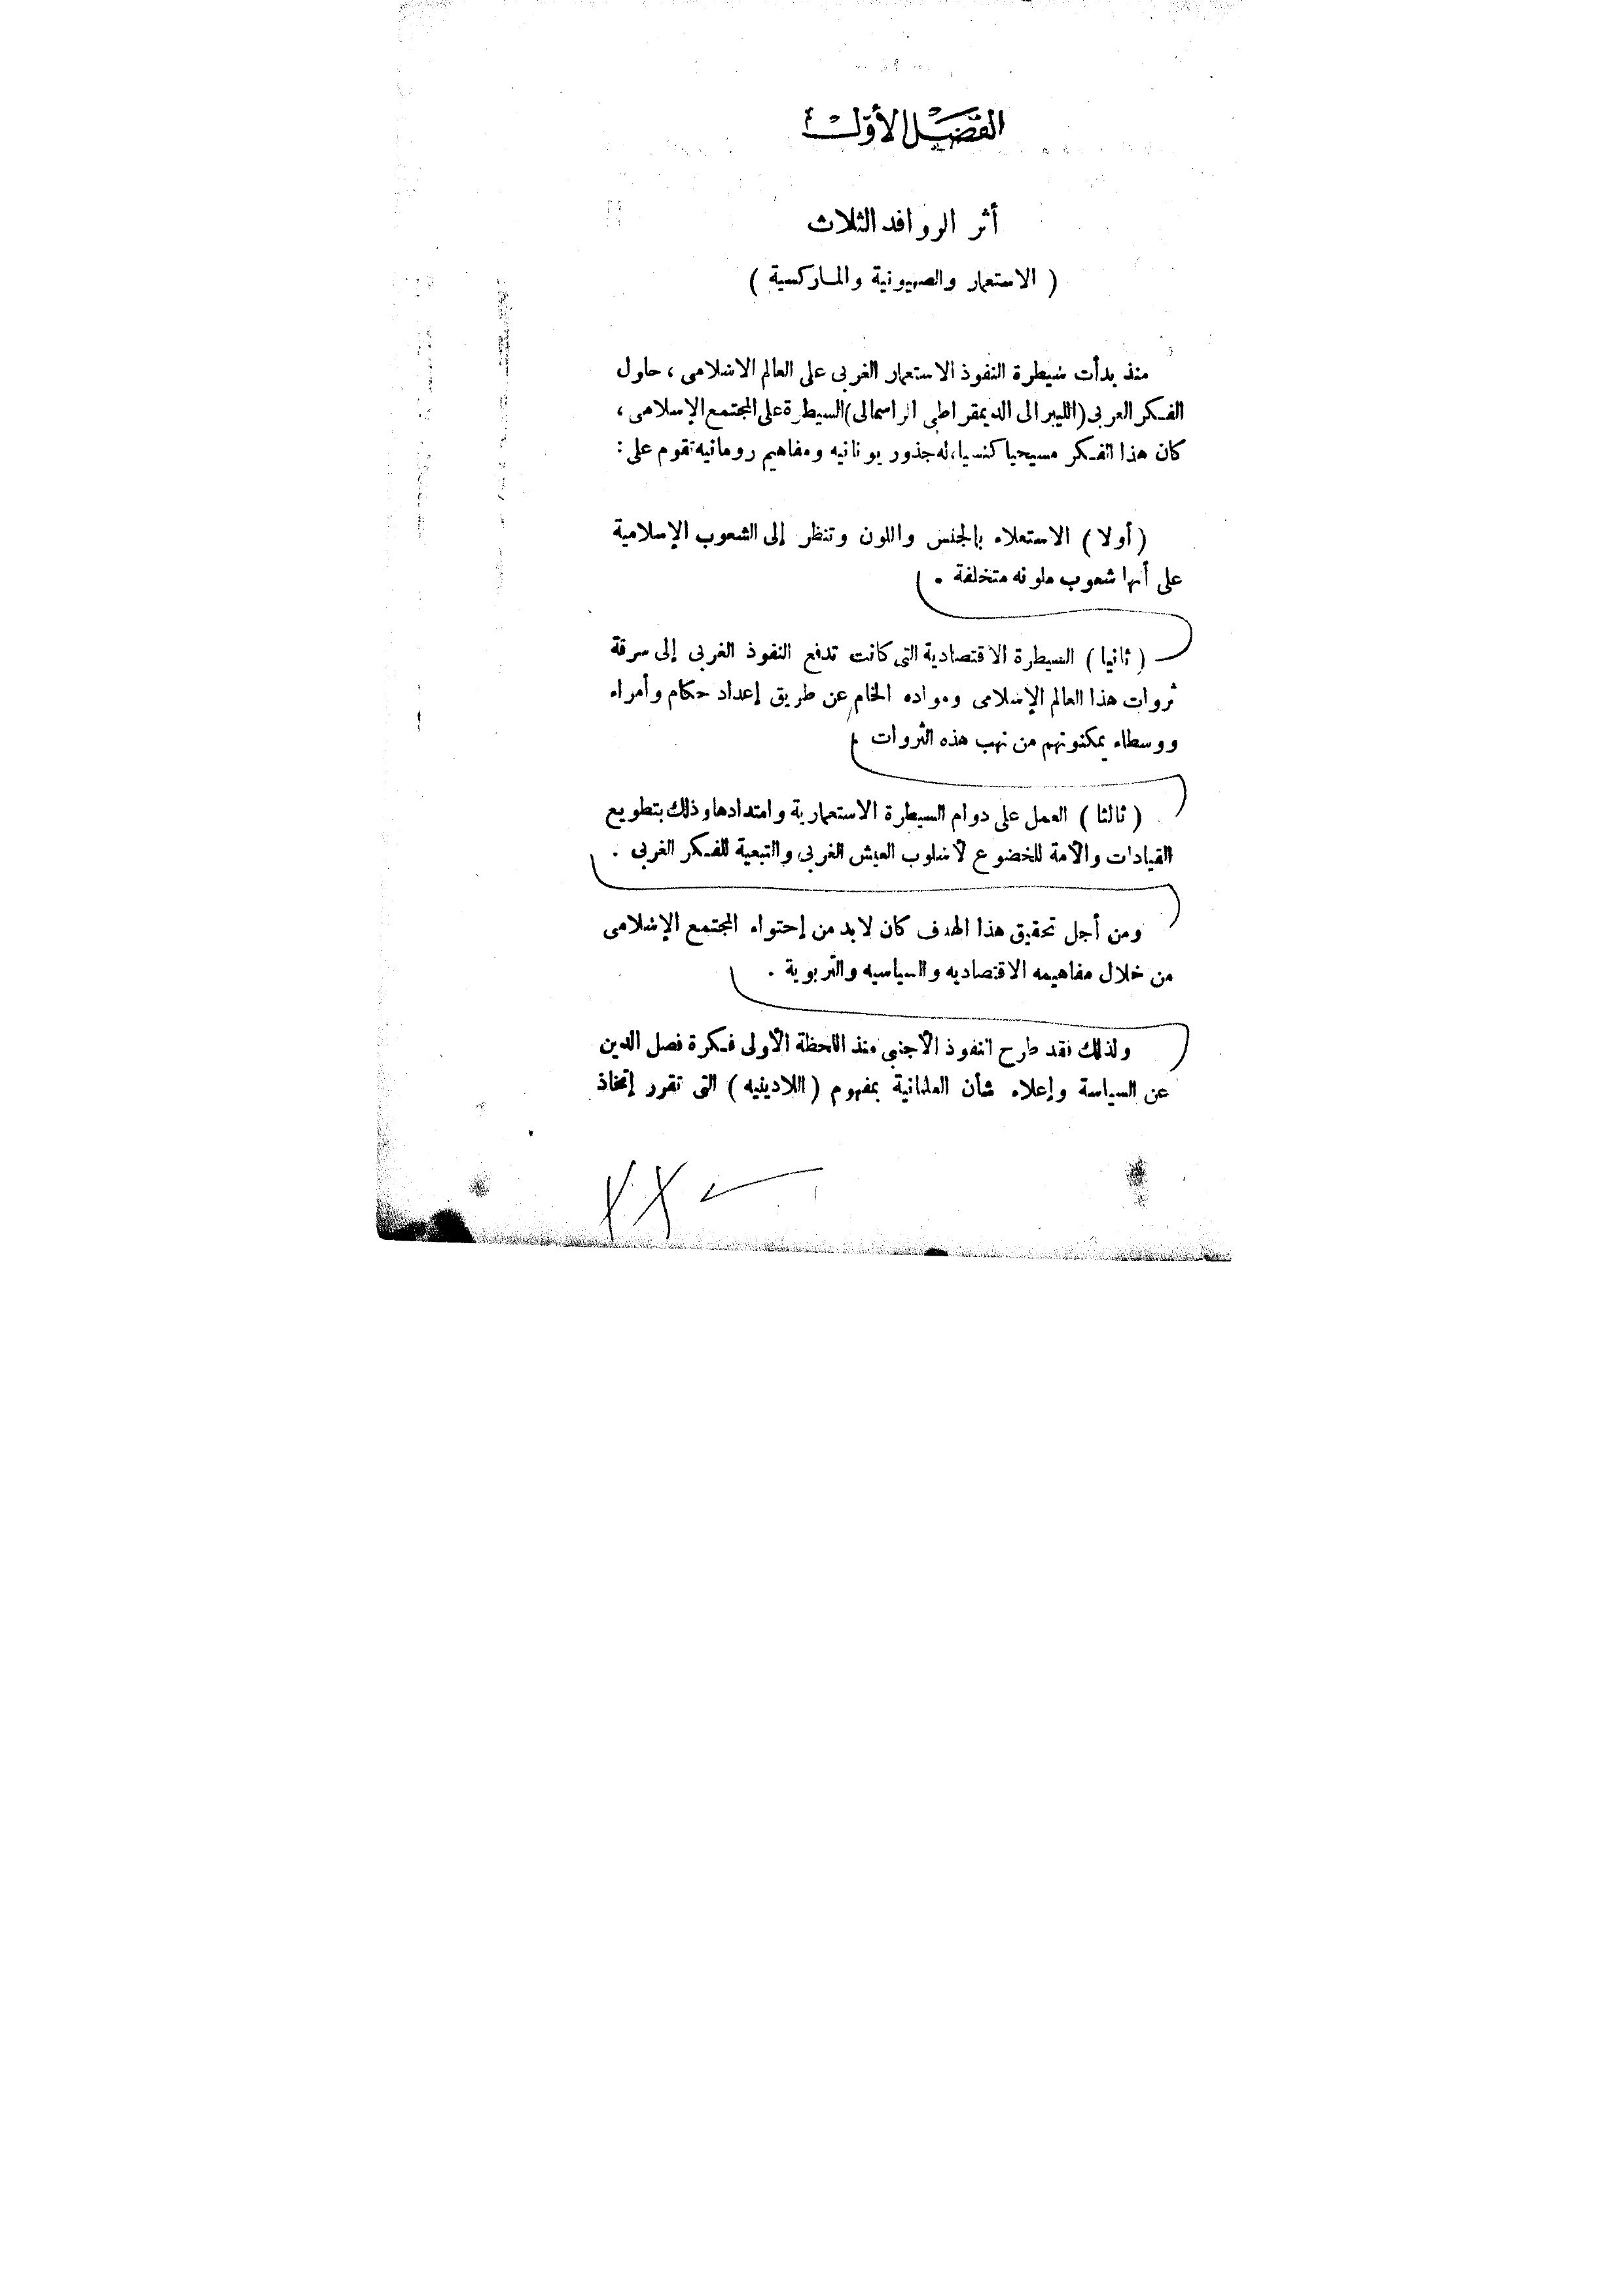 الفصل الأول
أثر الروافد الثلاث
( الاستعمار والصهيونية والماركسية )
منذ بدأت سيطرة النفوذ الاستعمار الغربى على العالم الاسلامى ، حاول
الفكر الغربى (الليبرالى الديمقراطى الراسمالى) السيطرة على المجتمع الإسلامى ،
كان هذا الفكر مسيحيا كنسيا، له جذور يونانيه ومفاهيم رومانيه تقوم على :
( أولا ) الاستعلاء بالجنس واللون وتنظر إلى الشعوب الإسلامية
على أنها شعوب ملونه متخلفة .
( ثانيا ) السيطرة الاقتصادية التى كانت تدفع النفوذ الغربى إلى سرقة
ثروات هذا العالم الإسلامى ومواده الخام عن طريق إعداد حكام وأمراء
ووسطاء يمكنونهم من نهب هذه الثروات .
( ثالثا ) العمل على دوام السيطرة الاستعمارية وامتدادها وذلك بتطويع
القيادات والأمة للخضوع لأسلوب العيش الغربى والتبعية للفكر الغربى .
ومن أجل تحقيق هذا الهدف كان لابد من إحتواء المجتمع الإسلامى
من خلال مفاهيمه الاقتصاديه والسياسيه والتربوية .
ولذلك فقد طرح النفوذ الأجنبى منذ اللحظة الأولى فكرة فصل الدين
عن السياسة وإعلاء شأن العلمانية بمفهوم ( اللادينيه ) التى تقرر إتخاذ